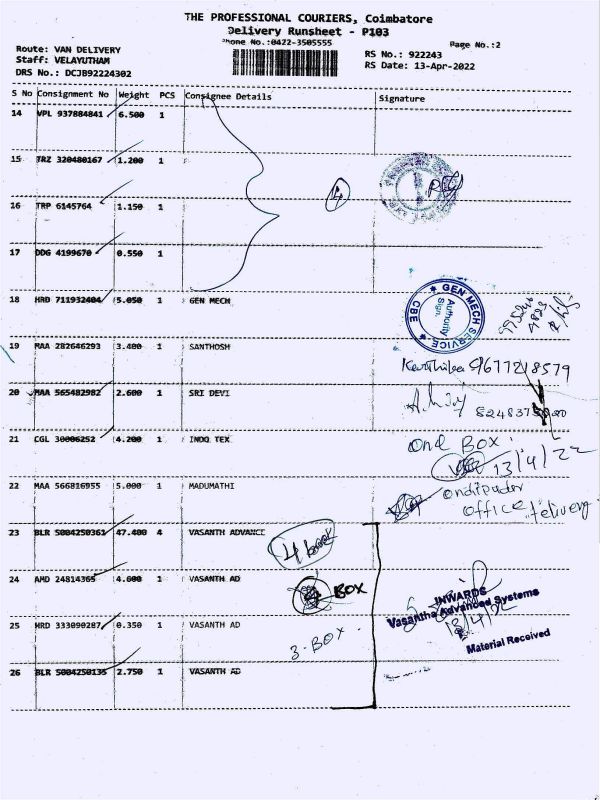 THE PROFESSIONAL COURIERS, Coimbatore
Delivery Runsheet - P103
Phone No.:0422-3505555
Page No.:2
Route: VAN DELIVERY
Staff: VELAYUTHAM
DRS No.: DCJB92224302
RS No.: 922243
RS Date: 13-Apr-2022
S No Consignment No Weight PCS Consignee Details Signature
14 VPL 937884841 6.500 1
15 TRZ 320480167 1.200 1
4
16 TRP 6145764 1.150 1
17 DDG 4199670 0.550 1
18 HRD 711932404 5.050 1 GEN MECH
GEN MECH SERVICE. CBE
Authority Sign.
19 MAA 282646293 3.400 1 SANTHOSH
9677218579
20 MAA 565482982 2.600 1 SRI DEVI
21 CGL 30006252 4.200 1 INDO TEX
One BOX.
13/4/22
22 MAA 566816955 5.000 1 MADUMATHI
ondipudur
office
23 BLR 5004250361 47.400 4 VASANTH ADVANCE
4 book
24 AMD 24814365 4.600 1 VASANTH AD
BOX
INWARDS
Vasantha Advanced Systems
13/4/22
Material Received
25 HRD 333090287 0.350 1 VASANTH AD
3-BOX.
26 BLR 5004250135 2.750 1 VASANTH AD